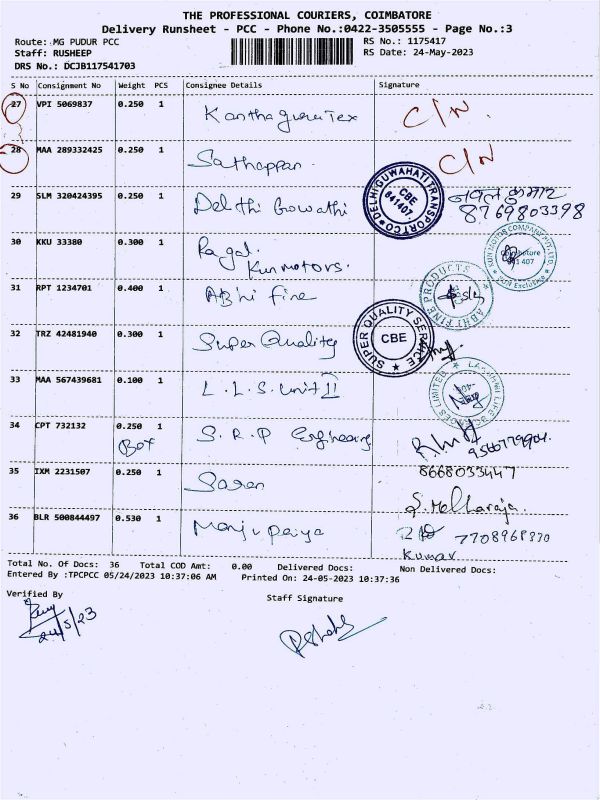 THE PROFESSIONAL COURIERS, COIMBATORE
Delivery Runsheet - PCC - Phone No.:0422-3505555 - Page No.:3
Route: MG PUDUR PCC
RS No.: 1175417
Staff: RUSHEEP
RS Date: 24-May-2023
DRS No.: DCJB117541703
S No Consignment No Weight PCS Consignee Details Signature
27 VPI 5069837 0.250 1 Kantha guru Tex C/N.
28 MAA 289332425 0.250 1 Sathappan. C/N
29 SLM 320424395 0.250 1 Delthi Gowathi 8769803398
DELHI GUWAHATI TRANSPORT CO CBE 641407
30 KKU 33380 0.300 1 Pagal. Kun motors.
KUN MOTOR COMPANY PVT. LTD. Coimbatore
31 RPT 1234701 0.400 1 Abhi fine
ABHI FINE PRODUCTS
32 TRZ 42481940 0.300 1 Super Quality
SUPER QUALITY SERVICE CBE
33 MAA 567439681 0.100 1 L.L.S. Unit II
34 CPT 732132 0.250 1 S.R.P Engineering
Box
35 IXM 2231507 0.250 1 Saren 8668033447
36 BLR 500844497 0.530 1 Manju Priya 7708968370
Kumar
Total No. Of Docs: 36 Total COD Amt: 0.00 Delivered Docs: Non Delivered Docs:
Entered By :TPCPCC 05/24/2023 10:37:06 AM Printed On: 24-05-2023 10:37:36
Verified By
Staff Signature
24/5/23